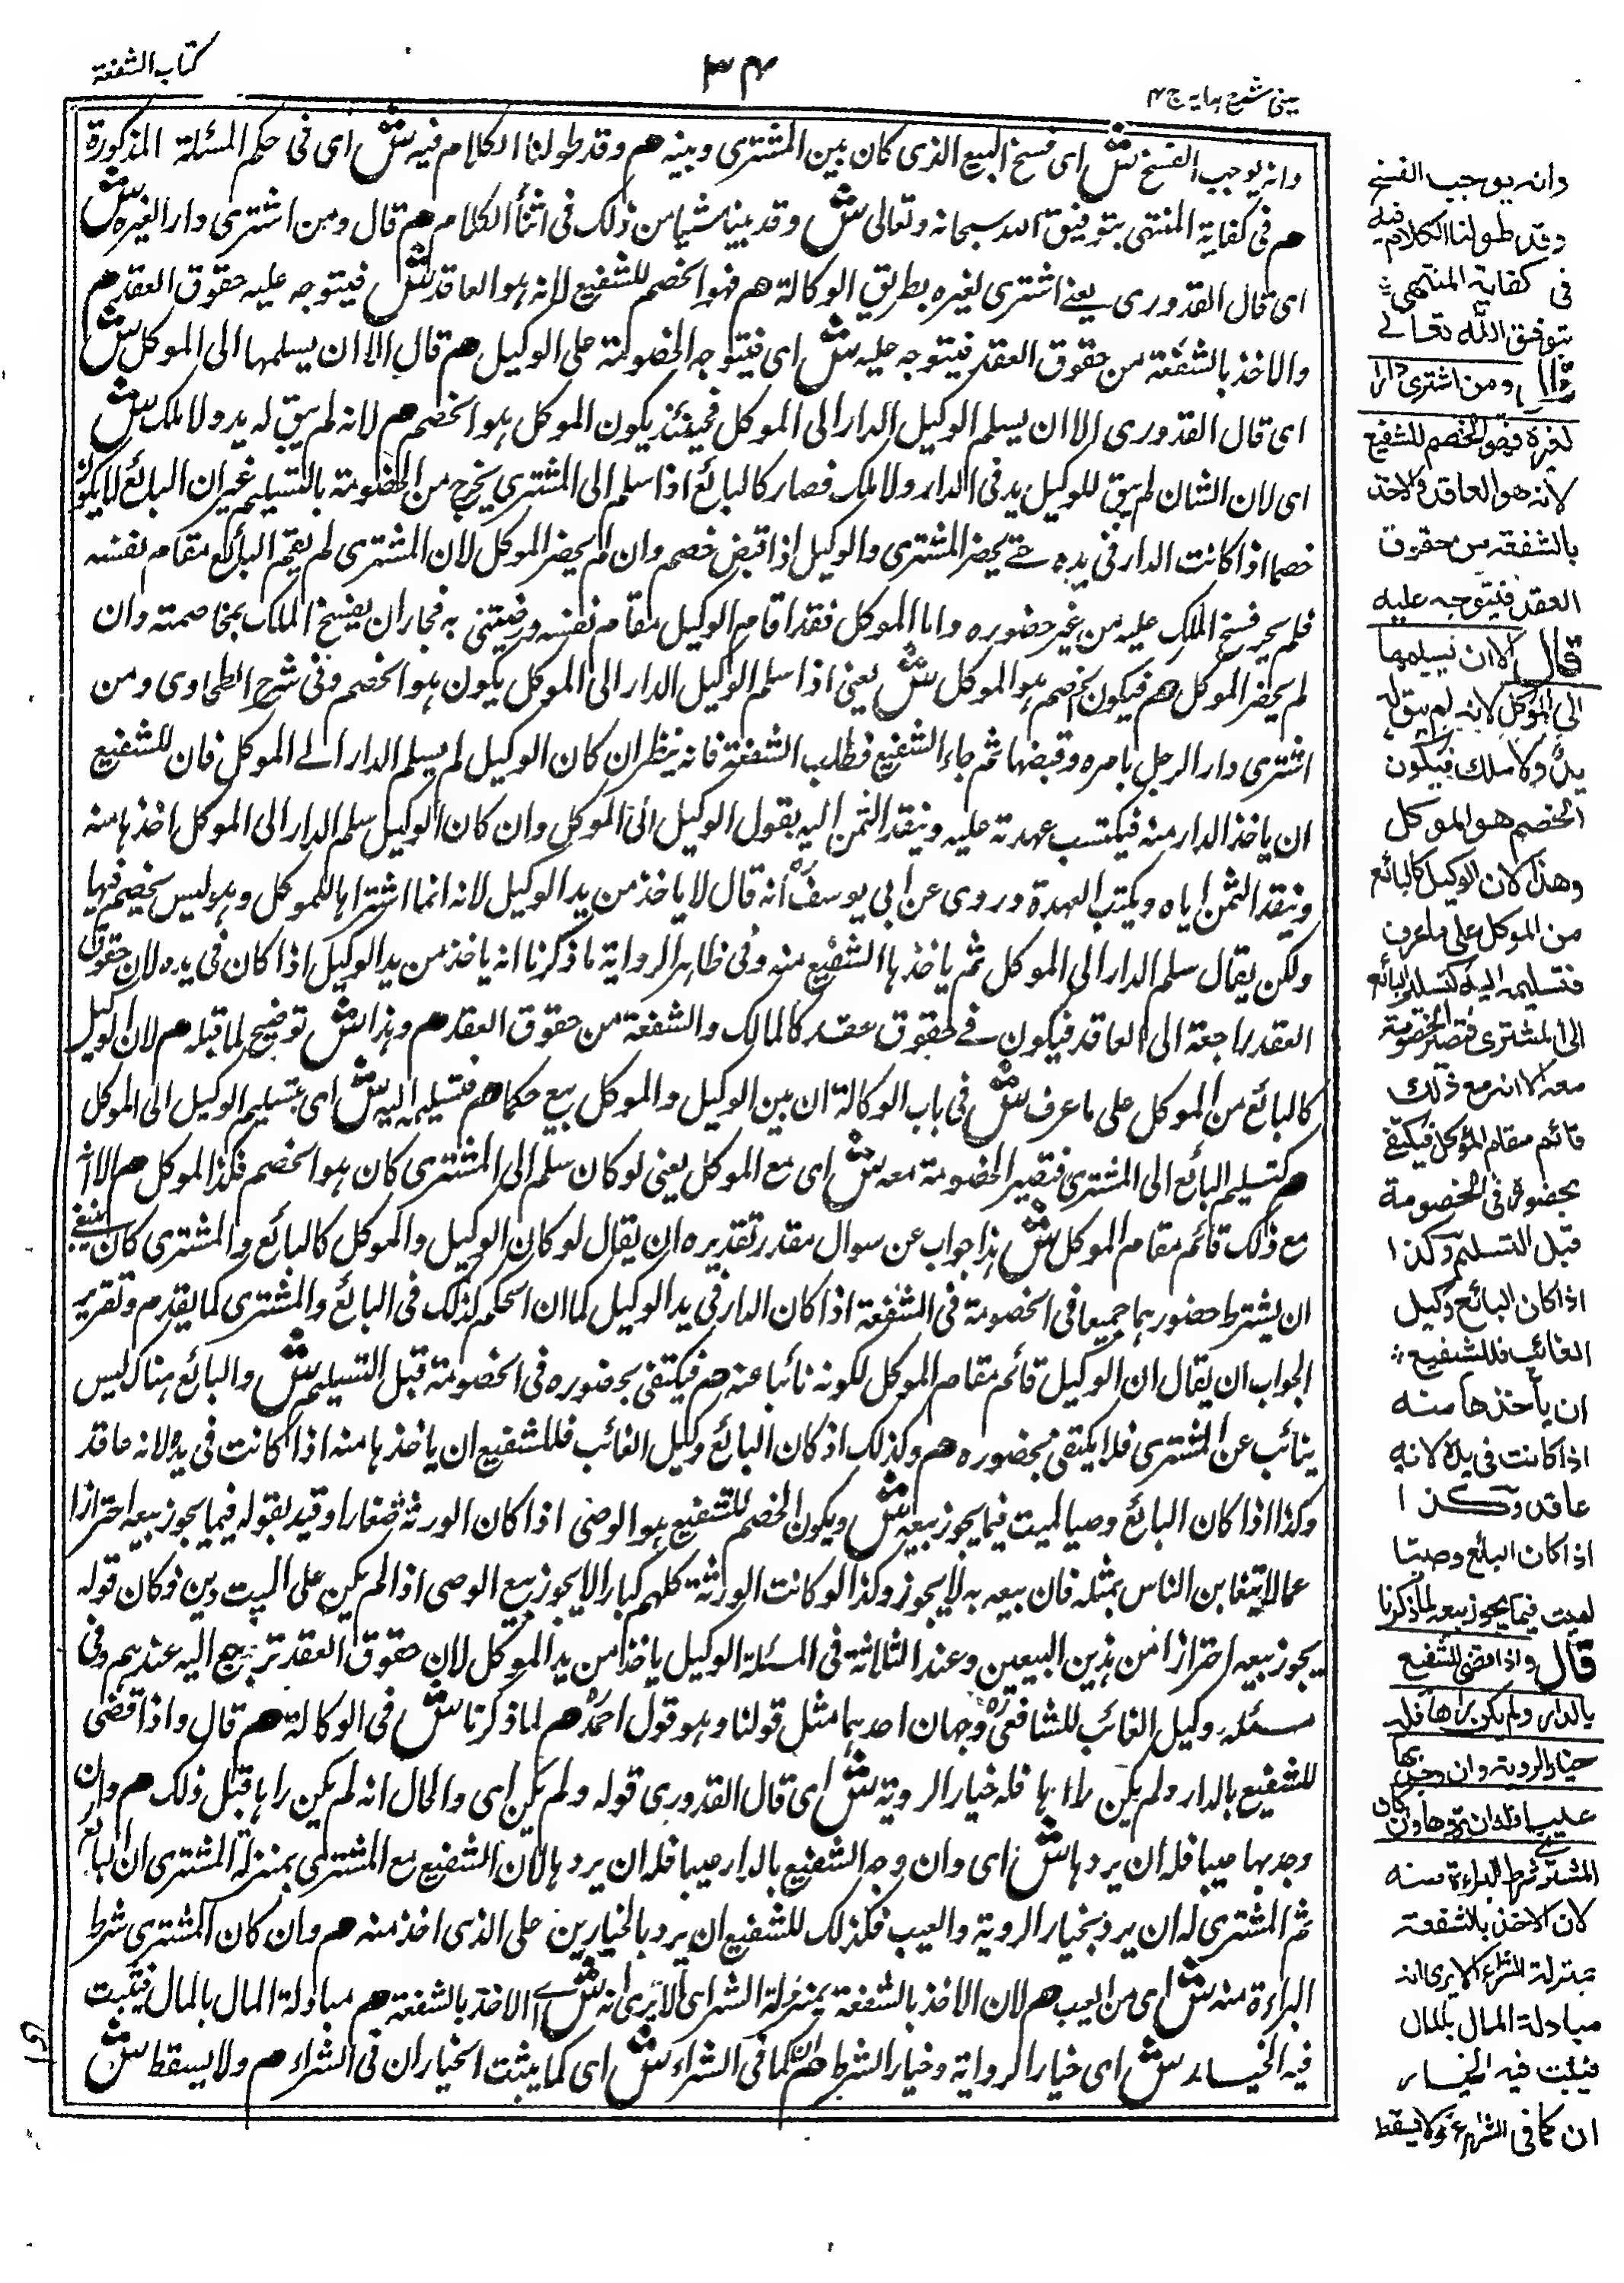 كتاب الشفعة
٣٤
عينى شرح هدايه ج ٤
وانه يوجب الفسخ ش اى فسخ البيع الذى كان بين المشترى وبينه هم وقد طولنا الكلام فيه ش اى فى حكم المسئلة المذكورة
هم فى كفاية المنتهى بتوفيق الله سبحانه وتعالى ش وقد بينا شيا من ذلك فى اثنأ الكلام هم قال ومن اشترى دار الغيره ش
اى قال القدورى يعنے اشترى لغيره بطريق الوكالة هم فهو الخصم للشفيع لانه هو العاقد ش فيتوجه عليه حقوق العقد هم
والاخذ بالشفعة من حقوق العقد فيتوجه عليه ش اى فيتوجه الخصومة على الوكيل هم قال الا ان يسلمها الى الموكل ش
اى قال القدورى الا ان يسلم الوكيل الدار الى الموكل فحينئذ يكون الموكل هو الخصم هم لانه لم يبق له يد ولا ملك ش
اى لان الشان لم يبق للوكيل يد فى الدار ولا ملك فصار كالبائع اذا سلم الى المشترى يخرج من الخصومة بالتسليم غير ان البائع لا يكون
خصما اذا كانت الدار فى يده حتے يحضر المشترى والوكيل اذا قبض خصم وان لم يحضر الموكل لان المشترى لم يقم البائع مقام نفسه
فلم يجز فسخ الملك عليه من غير حضوره واما الموكل فقد اقام الوكيل مقام نفسه ورضيتنى به فجاز ان يفسخ الملك بمخاصمته وان
لم يحضر الموكل هم فيكون الخصم هو الموكل ش يعنى اذا سلم الوكيل الدار الى الموكل يكون هو الخصم وفى شرح الطحاوى ومن
اشترى دار الرجل بامره وقبضها ثم جاء الشفيع فطلب الشفعة فانه ينظر ان كان الوكيل لم يسلم الدار الے الموكل فان للشفيع
ان ياخذ الدار منه فيكتسب عهدته عليه وينقد الثمن اليه بقول الوكيل الى الموكل وان كان الوكيل سلم الدار الى الموكل اخذها منه
وينقد الثمن اياه ويكتب العهدة وروى عن ابى يوسف انه قال لا ياخذ من يد الوكيل لانه انما اشتراها للموكل وهو ليس بخصم فيها
ولكن يقال سلم الدار الى الموكل ثم ياخذها الشفيع منه وفى ظاهر الرواية ما ذكرنا انه ياخذ من يد الوكيل اذا كان فى يده لان حقوق
العقد راجعة الى العاقد فيكون فے حقوق عقد كالمالك والشفعة من حقوق العقد هم وهذا ش توضيح لما قبله هم لان الوكيل
كالبائع من الموكل على ما عرف ش فى باب الوكالة ان بين الوكيل والموكل بيع حكما هم فتسليمه اليه ش اى بتسليم الوكيل الى الموكل
هم كتسليم البائع الى المشترى فتصير الخصومة معه ش اى مع الموكل يعنى لو كان سلم الى المشترى كان هو الخصم فكذا الموكل هم الا انه
مع ذلك قائم مقام الموكل ش هذا جواب عن سوال مقدر تقديره ان يقال لو كان الوكيل والموكل كالبائع والمشترى كان ينبغے
ان يشترط حضورهما جميعا فى الخصومة فى الشفعة اذا كان الدار فى يد الوكيل كما ان الحكم كذلك فى البائع والمشترى كما يقدم وتقرير
الجواب ان يقال ان الوكيل قائم مقام الموكل لكونه نائبا عنه هم فيكتفى بحضوره فى الخصومة قبل التسليم ش والبائع هناك ليس
بنائب عن المشترى فلا يكتفى بحضوره هم وكذلك اذ كان البائع وكيل الغائب فللشفيع ان ياخذها منه اذا كانت فى يده لانه عاقد
وكذا اذا كان البائع وصيا لميت فيما يجوز بيعه ش ويكون الخصم للشفيع هو الوصى اذا كان الورثة صغارا وقيد بقوله فيما يجوز بيعه احترازا
عما لا يتغابن الناس بمثله فان بيعه به لا يجوز وكذا لو كانت الورثة كلهم كبارا لا يجوز بيع الوصى اذا لم يكن على الميت دين فكان قوله
يجوز بيعه احترازا من هذين البيعين وعند الثلاثة فى المسئلة الوكيل ياخذ من يد الموكل لان حقوق العقد ترجع اليه عندهم وفى
مسئلة وكيل الغائب للشافعى وجهان احدهما مثل قولنا وهو قول احمد هم لما ذكرنا ش فى الوكالة هم قال واذا قضى
للشفيع بالدار ولم يكن راها فله خيار الروية ش اى قال القدورى قوله ولم يكن اى والحال انه لم يكن راها قبل ذلك هم وان
وجد بها عيبا فله ان يردها ش اى وان وجد الشفيع بالدار عيبا فله ان يردها لان الشفيع مع المشترى بمنزلة المشترى ان البائع
ثم المشترى له ان يرد بخيار الروية والعيب فكذلك للشفيع ان يرد بالخيارين على الذى اخذ منه هم وان كان المشترى شرط
البراءة منه ش اى من العيب هم لان الاخذ بالشفعة بمنزلة الشراء الا يرى انه ش اے الاخذ بالشفعة هم مبادلة المال بالمال فيثبت
فيه الخيار ش اى خيار الرواية وخيار الشرط هم كما فى الشراء ش اى كما يثبت الخياران فى الشراء هم ولا يسقط ش
وانه يوجب الفسخ
وقد طولنا الكلام فيه
فى كفاية المنتهى
بتوفيق الله تعالے
قال ومن اشترى دارا
لغيره فهو الخصم للشفيع
لانه هو العاقد والاخذ
بالشفعة من حقوق
العقد فيتوجه عليه
قال الا ان يسلمها
الى الموكل لانه لم يبق له
يد ولا ملك فيكون
الخصم هو الموكل
وهذا لان الوكيل كالبائع
من الموكل على ما عرف
فتسليمه اليه كتسليم البائع
الى المشترى فتصير الخصومة
معه الا انه مع ذلك
قائم مقام الموكل فيكتفى
بحضوره فى الخصومة
قبل التسليم وكذا
اذا كان البائع وكيل
الغائب فللشفيع
ان يأخذها منه
اذا كانت فى يده لانه
عاقد وكذا
اذا كان البائع وصيا
لميت فيما يجوز بيعه لما ذكرنا
قال واذا قضى للشفيع
بالدار ولم يكن راها فله
خيار الروية وان وجد بها
عيبا فله ان يردها وان كان
المشترى شرط البراءة منه
لان الاخذ بالشفعة
بمنزلة الشراء الا يرى انه
مبادلة المال بالمال
فيثبت فيه الخيار
ان كما فى الشراء ولا يسقط